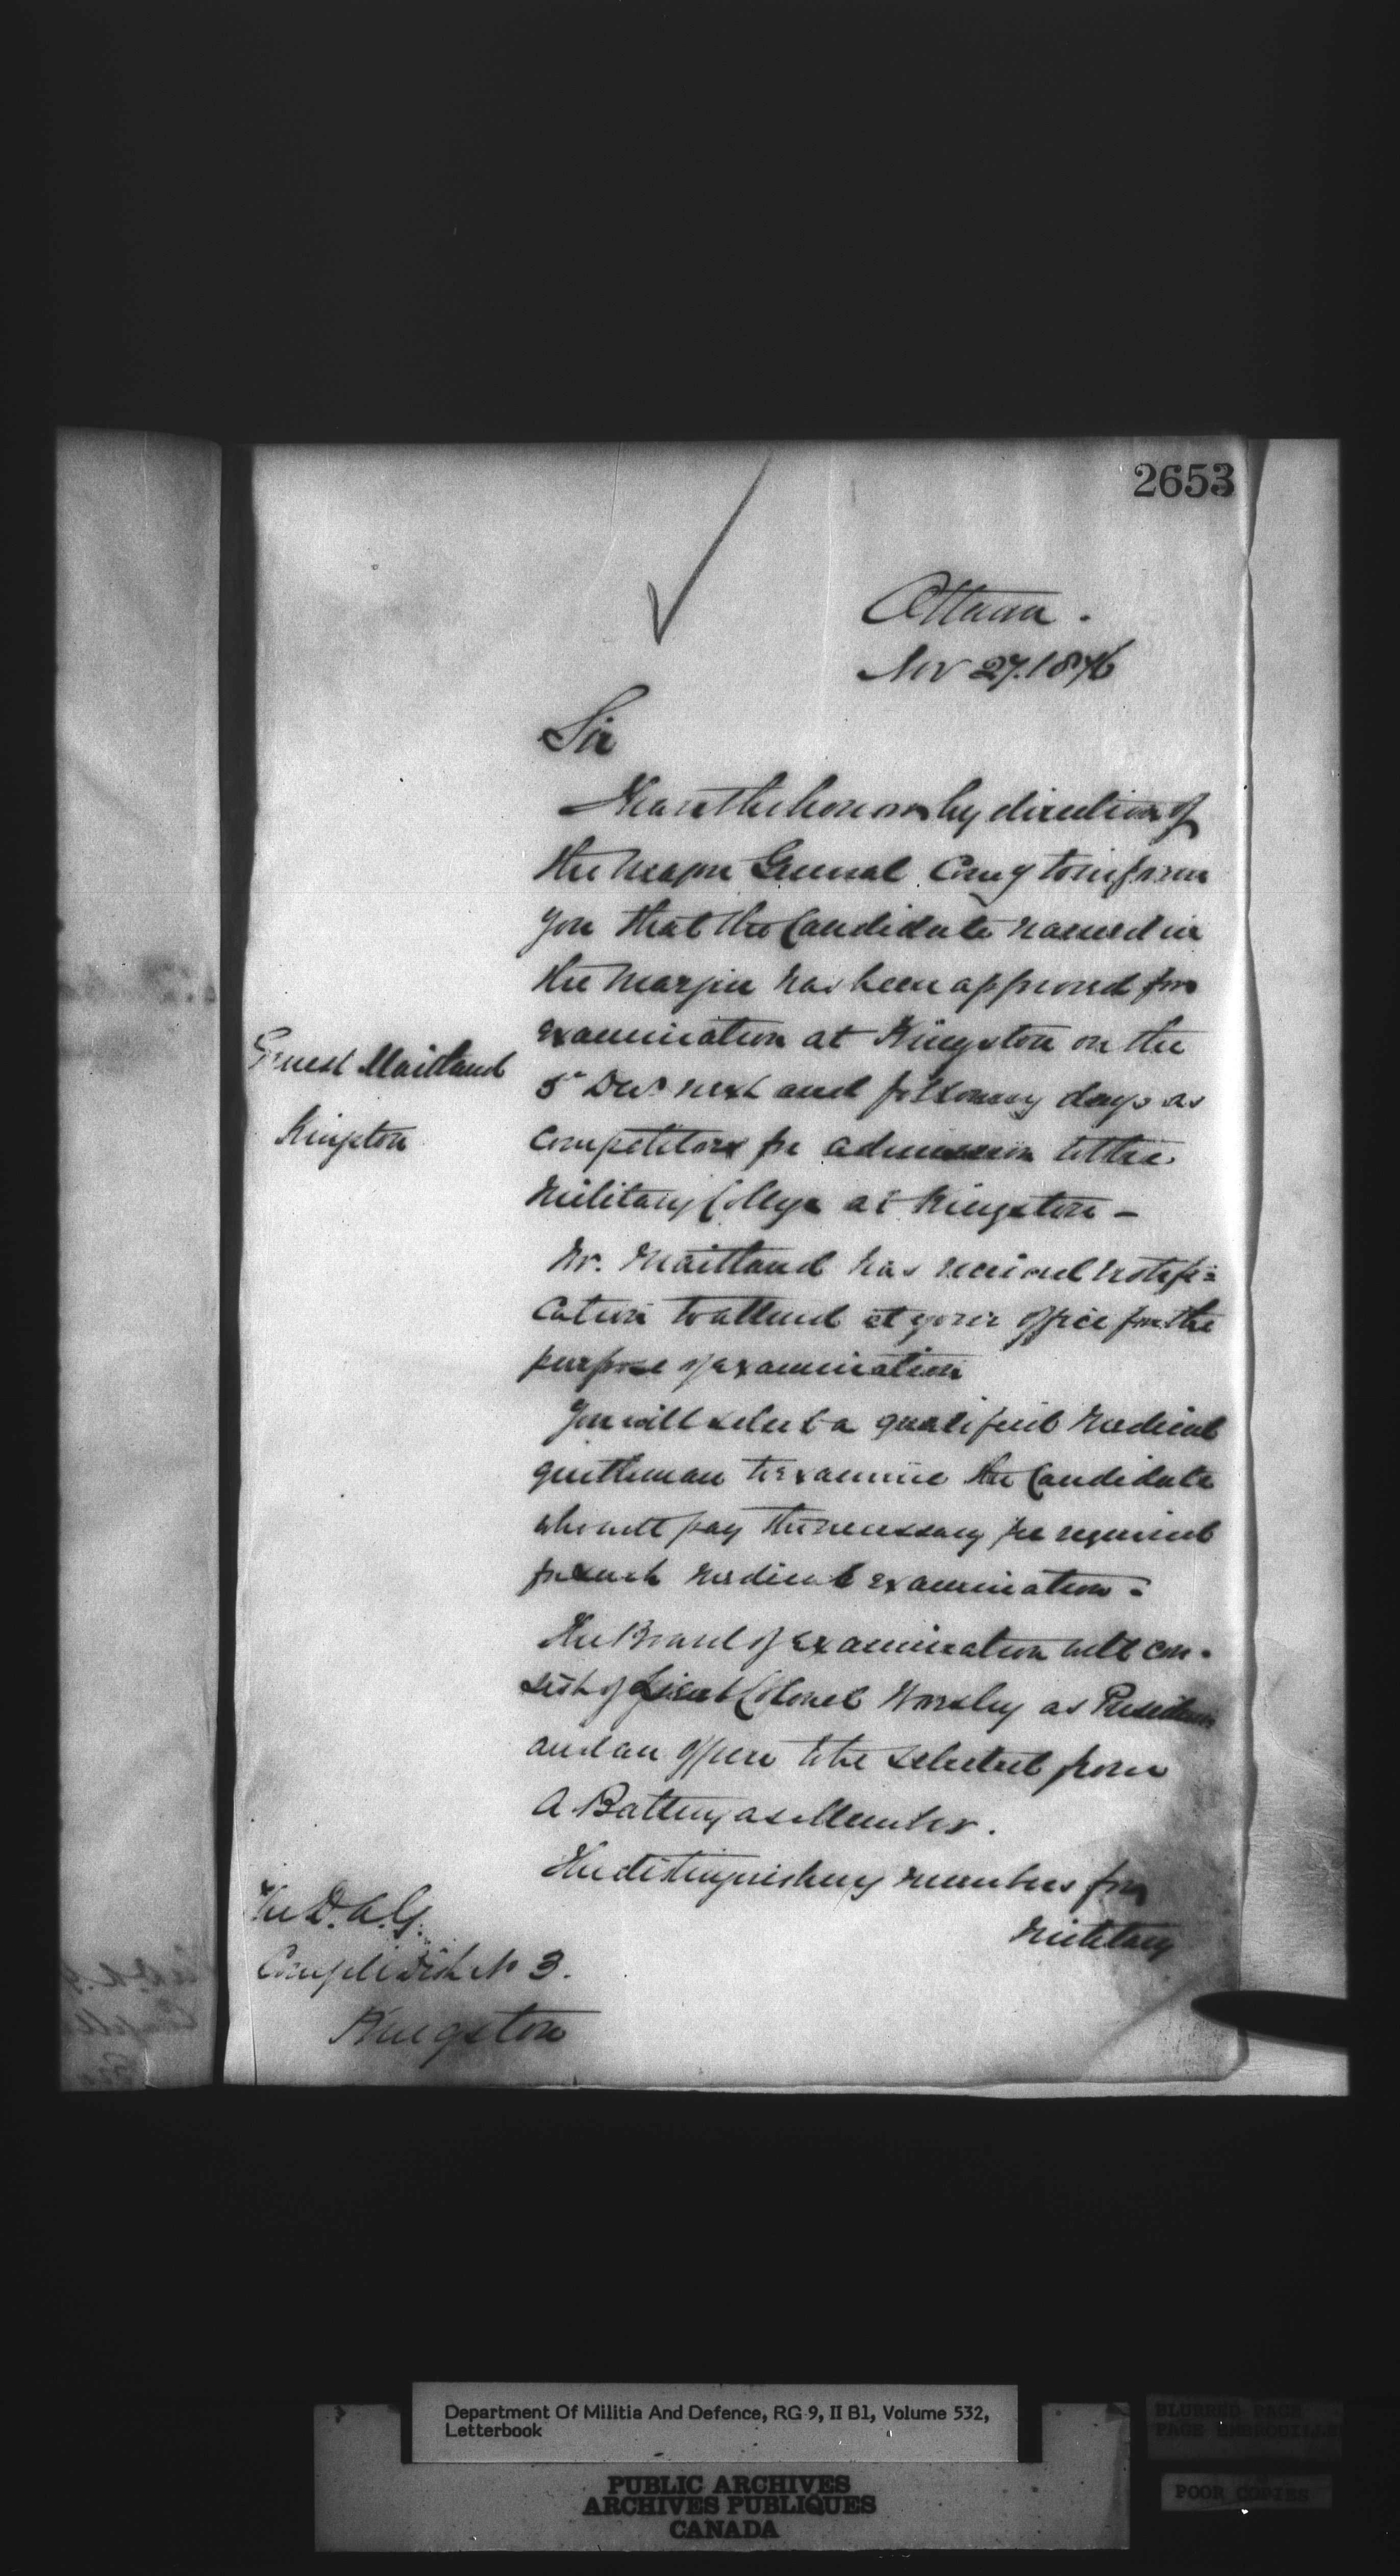 2653
Ottawa.
Nov 27. 1876
Sir
I have the honor by direction of
the Major General Comg to inform
you that the Candidate named in
the margin has been approved for
Ernest Maitland
Kingston
examination at Kingston on the
5th Decr next and following days as
competitors for admission to the
Military College at Kingston —
Mr. Maitland has received notifi=
cation to attend at your office for the
purpose of examination
You will select a qualified medical
gentleman to examine the Candidate
who will pay the necessary fee required
for such medical examination -
The Board of Examination will con-
sist of Lieut Colonel Worsley as President
and an officer to be selected from
A Battery as Member.
The distinguishing numbers for
Military
The D.A.G.
Comg Mil Dist No 3.
Kingston
Department Of Militia And Defence, RG 9, II B1, Volume 532,
Letterbook
PUBLIC ARCHIVES
ARCHIVES PUBLIQUES
CANADA
BLURRED PAGE
PAGE EMBROUILLE
POOR COPIES